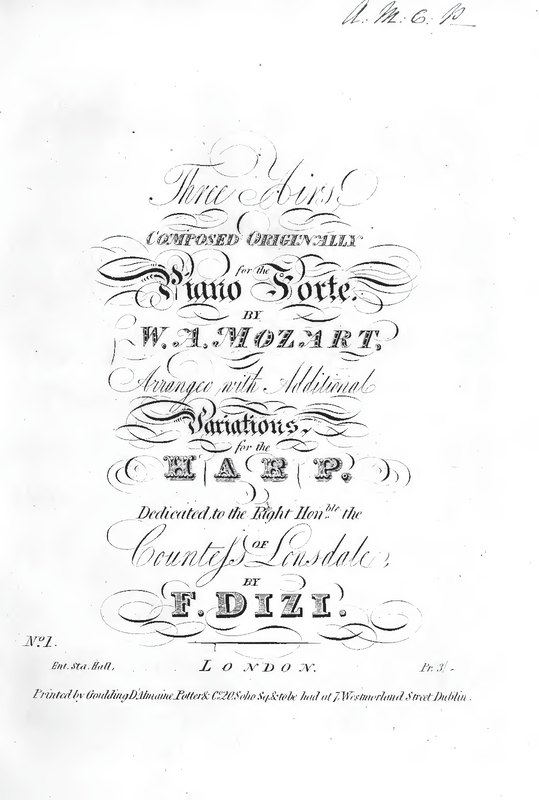 A. M. C. P
Three Airs,
COMPOSED ORIGINALLY
for the
Piano Forte.
BY
W. A. MOZART,
Arranged with Additional
Variations,
for the
HARP.
Dedicated, to the Right Hon.ble the
Countess OF Lonsdale,
BY
F. DIZI.
No. 1.
Ent. Sta. Hall, LONDON. Pr. 3/-
Printed by Goulding D'Almaine, Potter & Co. 20, Soho Sq. & to be had at 7, Westmorland Street Dublin.